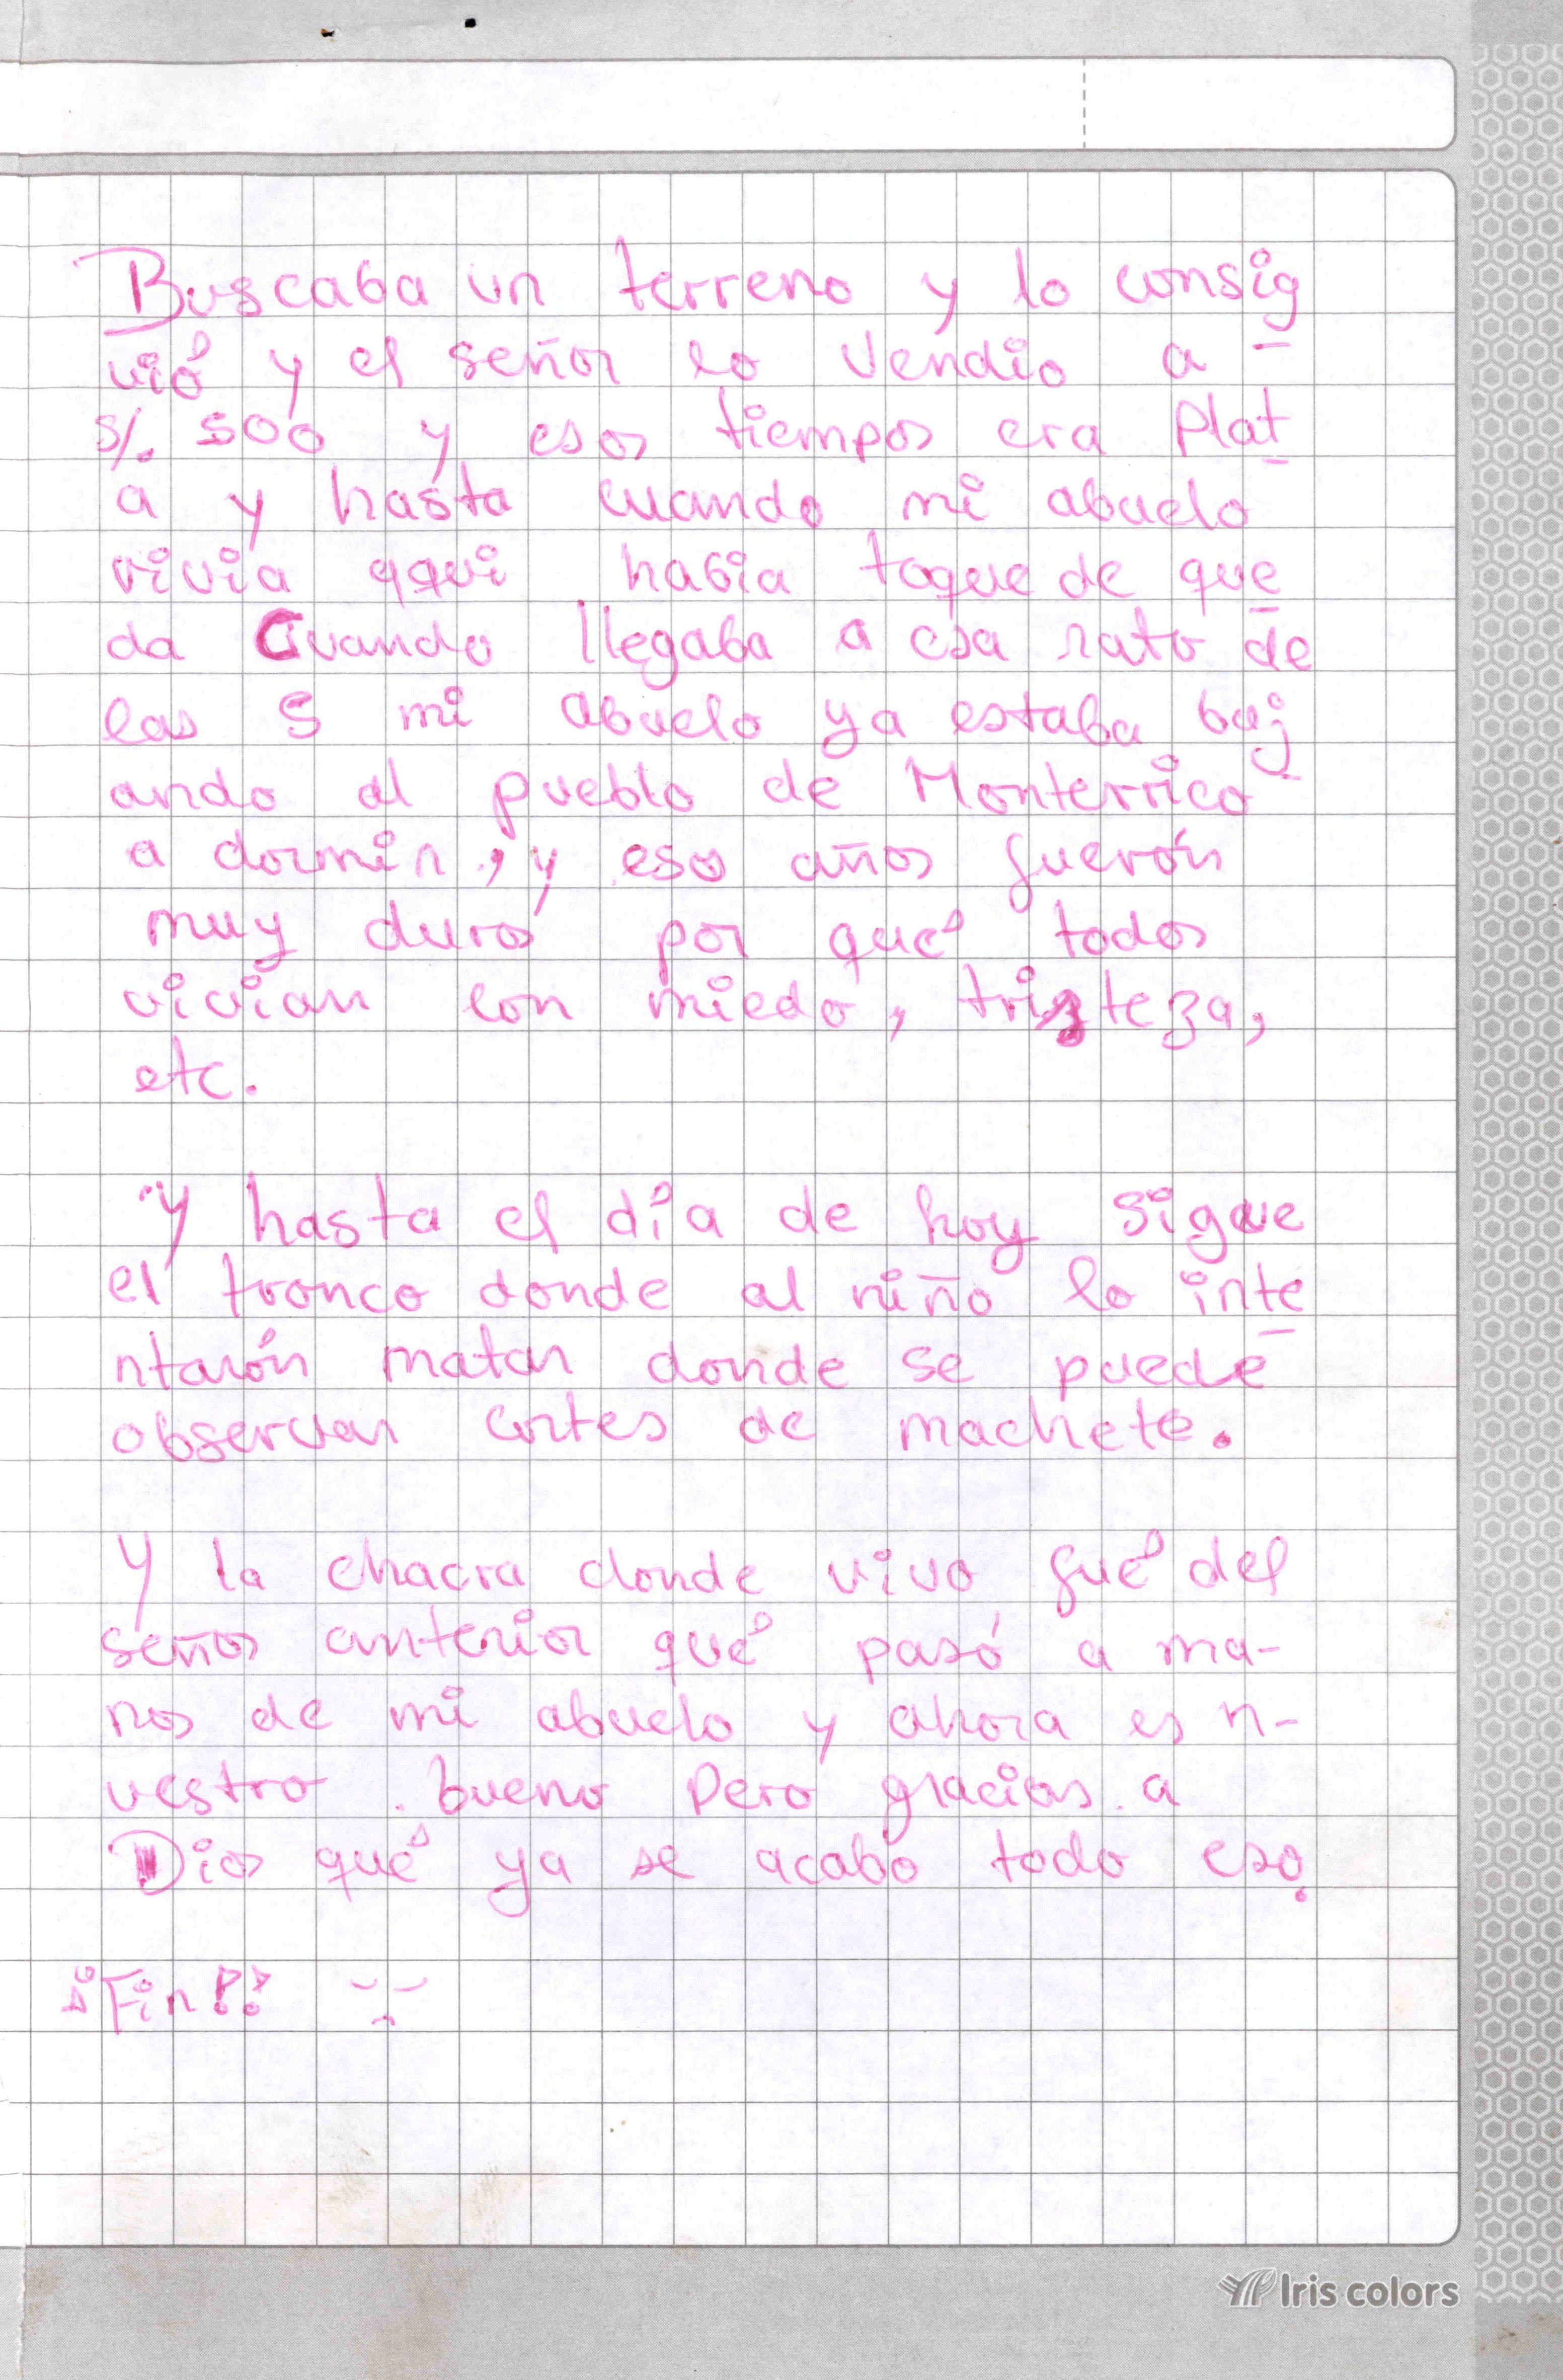 Buscaba un terreno y lo consig
uió y el señor lo vendio a
s/. 500 y esos tiempos era Plat
a y hasta cuando mi abuelo
vivia aqui habia toque de que
da Cuando llegaba a esa rato de
las 5 mi abuelo ya estaba baj
ando al pueblo de Monterrico
a dormir, y eso años fuerón
muy duros por qué todos
vivian con miedo, tristeza,
etc.
Y hasta el día de hoy sigue
el tronco donde al niño lo inte
ntarón matar donde se puede
observar cortes de machete.
Y la chacra donde vivo fué del
señor anterior qué pasó a ma-
nos de mi abuelo y ahora es n-
uestro. bueno Pero gracias a
Dios qué ya se acabo todo eso.
¡Fin!!
Iris colors